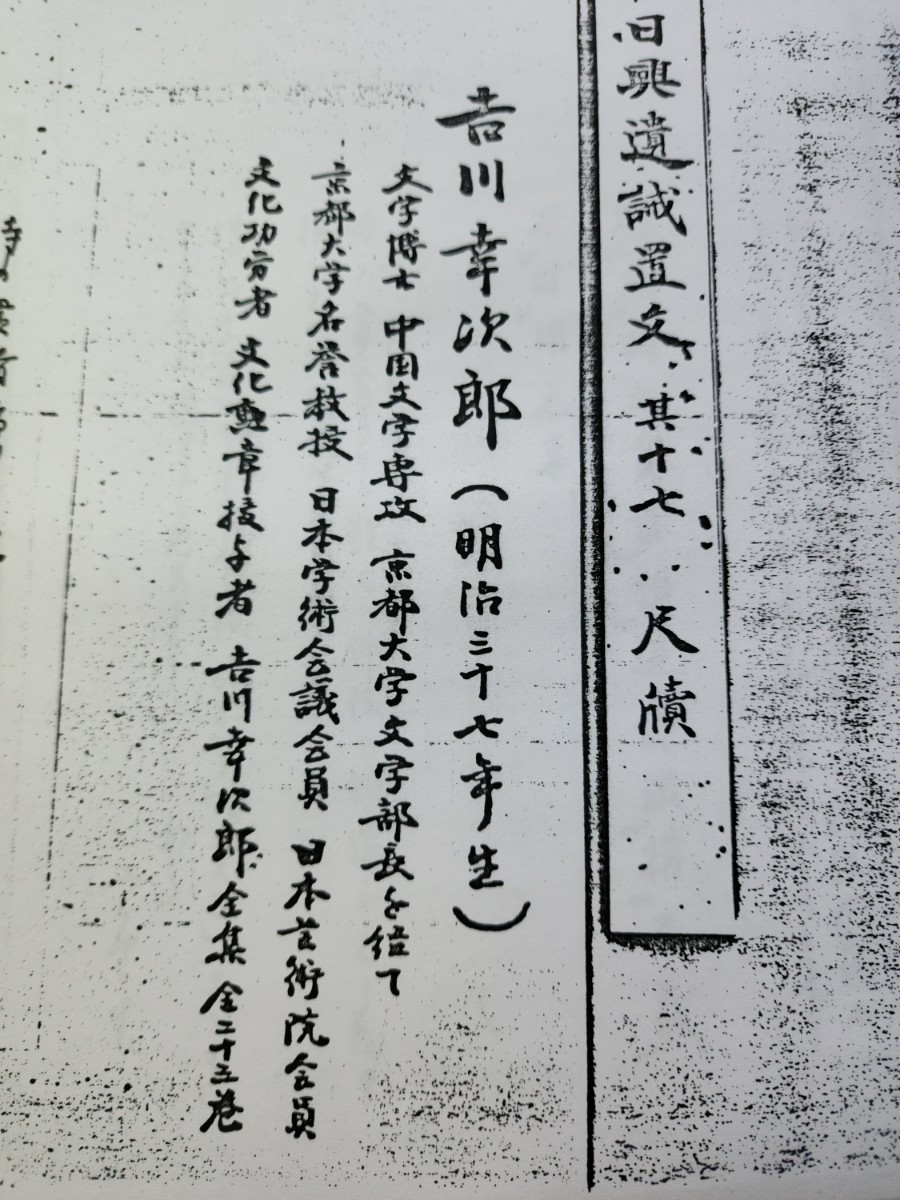 日興遺誡置文 其十七 尺牘
吉川幸次郎(明治三十七年生)
文学博士 中国文学専攻 京都大学文学部長を経て
京都大学名誉教授 日本学術会議会員 日本芸術院会員
文化功労者 文化勲章授与者 吉川幸次郎全集 全二十三巻